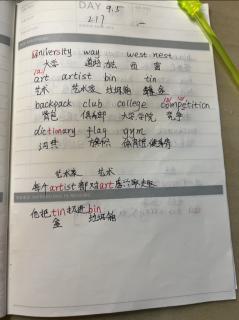 DAY 9.5
2.17
university way west nest
大学 道路 西 窝
/a:/
art artist bin tin
艺术 艺术家 垃圾箱 金
backpack club college competition
背包 俱乐部 大学,学院 竞争
dictionary flag gym
词典 体育馆
艺术家 艺术
每个artist都对art感兴趣
他把tin扔进bin
金 垃圾箱